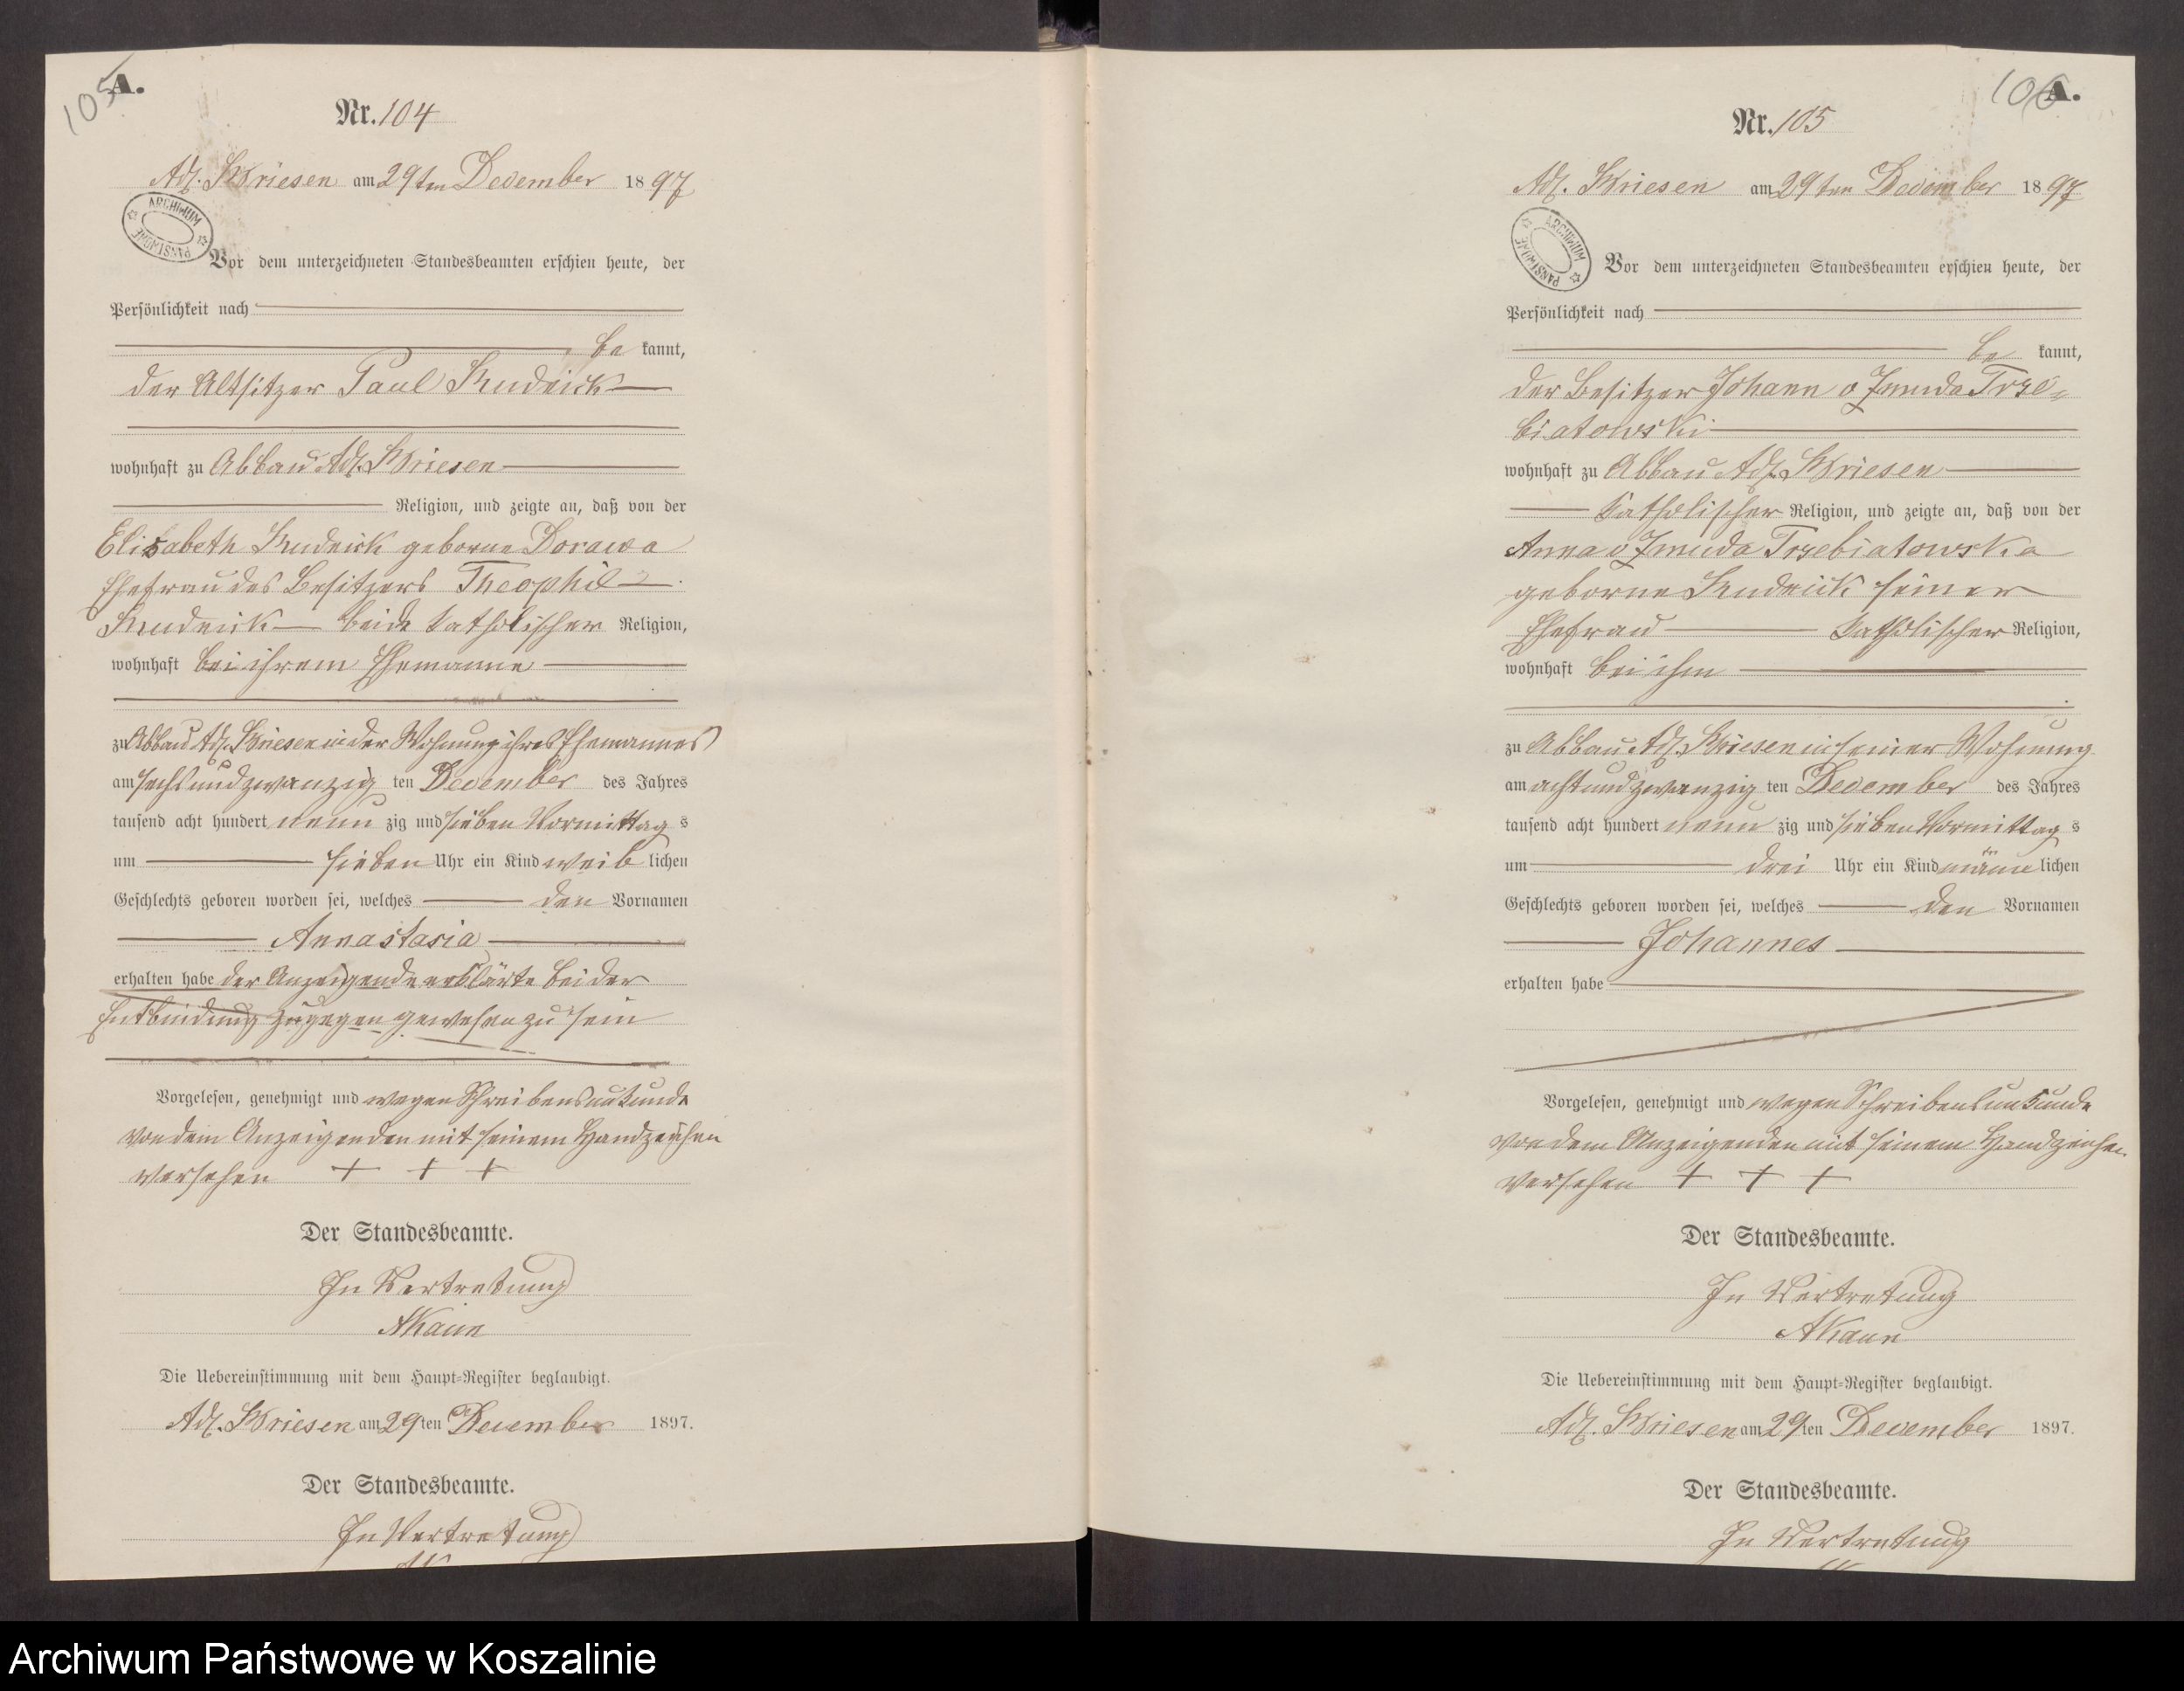 105
A.
Nr. 104
Adl. Briesen am 29ten December 1897
ARCHIWUM PAŃSTWOWE
Vor dem unterzeichneten Standesbeamten erschien heute, der
Persönlichkeit nach
be kannt,
der Altsitzer Paul Rudnick
wohnhaft zu Abbau Adl. Briesen
Religion, und zeigte an, daß von der
Elisabeth Rudnick geborne Dorawa
Ehefrau des Besitzers Theophil
Rudnick beide katholischer Religion,
wohnhaft bei ihrem Ehemanne
zu Abbau Adl. Briesen in der Wohnung ihres Ehemannes
am sechsundzwanzig ten December des Jahres
tausend acht hundert neun zig und sieben Vormittag s
um sieben Uhr ein Kind weib lichen
Geschlechts geboren worden sei, welches den Vornamen
Annastasia
erhalten habe der Anzeigende erklärte bei der
Entbindung zugegen gewesen zu sein
Vorgelesen, genehmigt und wegen Schreibensunkunde
von dem Anzeigenden mit seinem Handzeichen
versehen + + +
Der Standesbeamte.
In Vertretung
Die Uebereinstimmung mit dem Haupt-Register beglaubigt.
Adl. Briesen am 29ten December 1897.
Der Standesbeamte.
In Vertretung
106
A.
Nr. 105
Adl. Briesen am 29ten December 1897
ARCHIWUM PAŃSTWOWE
Vor dem unterzeichneten Standesbeamten erschien heute, der
Persönlichkeit nach
be kannt,
der Besitzer Johann v Zmuda Trze-
biatowski
wohnhaft zu Abbau Adl. Briesen
katholischer Religion, und zeigte an, daß von der
Anna v Zmuda Trzebiatowska
geborne Rudnick seiner
Ehefrau katholischer Religion,
wohnhaft bei ihm
zu Abbau Adl. Briesen in seiner Wohnung
am achtundzwanzig ten December des Jahres
tausend acht hundert neun zig und sieben Vormittag s
um drei Uhr ein Kind männ lichen
Geschlechts geboren worden sei, welches den Vornamen
Johannes
erhalten habe
Vorgelesen, genehmigt und wegen Schreibensunkunde
von dem Anzeigenden mit seinem Handzeichen
versehen + + +
Der Standesbeamte.
In Vertretung
Die Uebereinstimmung mit dem Haupt-Register beglaubigt.
Adl. Briesen am 29ten December 1897.
Der Standesbeamte.
In Vertretung
Archiwum Państwowe w Koszalinie